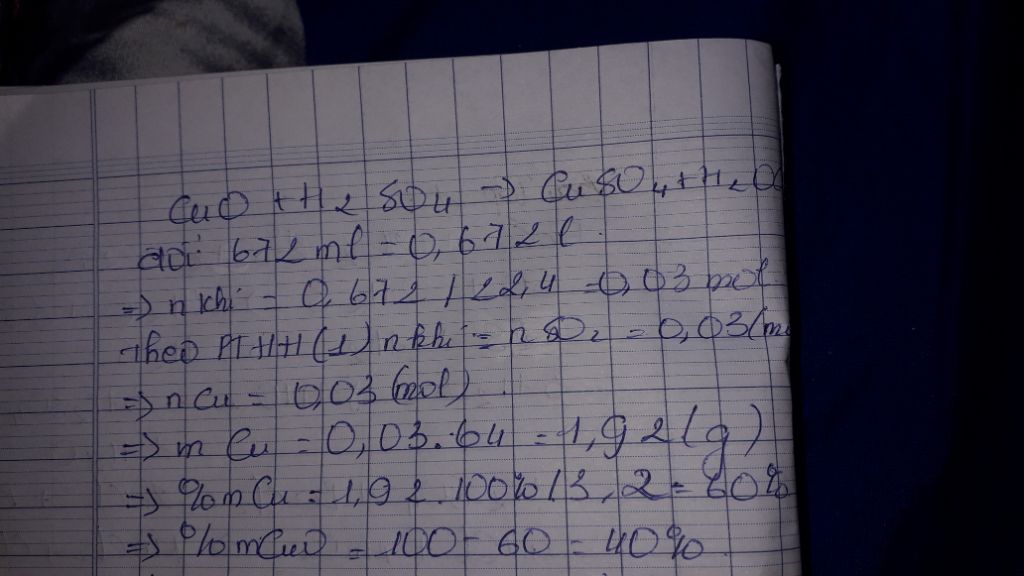 CuO + H2 SO4 → CuSO4 + H2O
đổi 672 ml = 0,672 l
=> n khí = 0,672 / 22,4 = 0,03 mol
Theo PTHH (1) n khí = n SO2 = 0,03 (mo
=> n Cu = 0,03 (mol)
=> m Cu = 0,03 . 64 = 1,92 (g)
=> %mCu = 1,92 . 100% / 3,2 = 60%
=> %mCuO = 100 - 60 = 40%